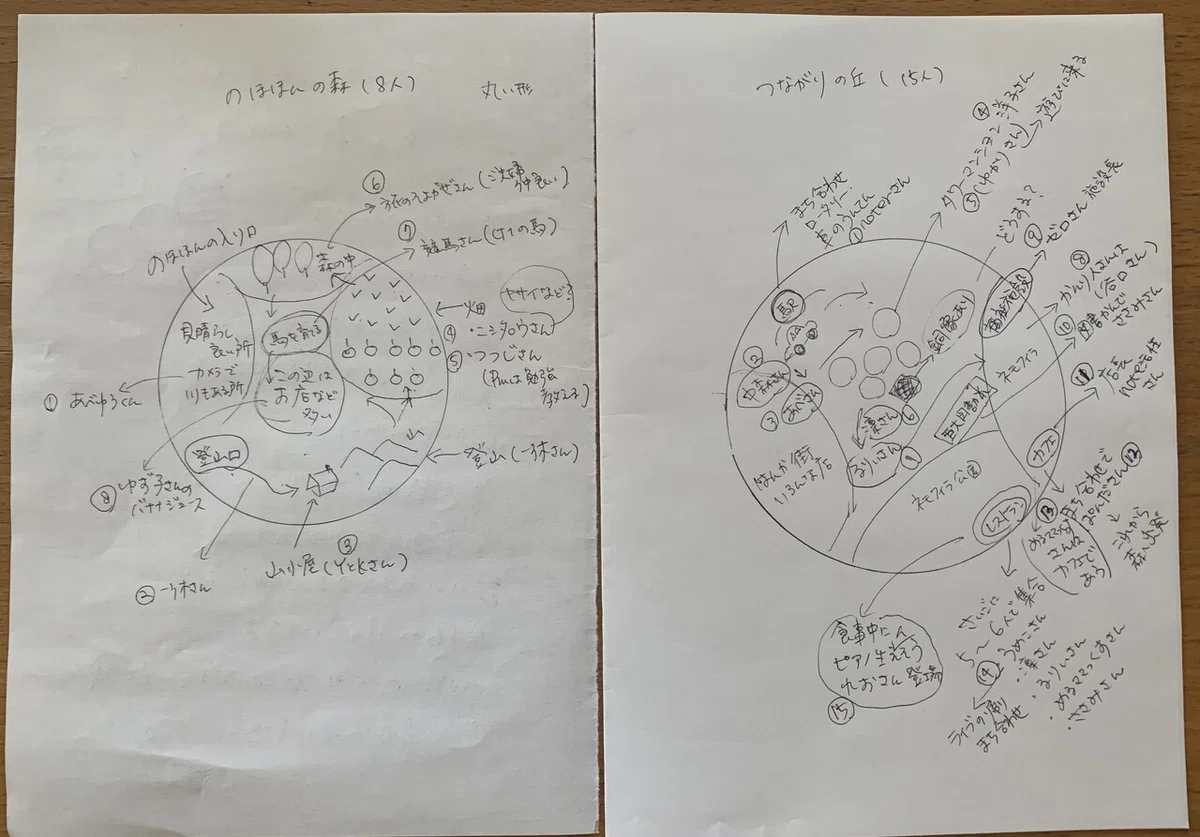 のほほんの森(8人)
丸い形
⑥
旅のそよかぜさん(ご夫婦仲良い)
⑦
競馬さん(せりの馬)
のほほんの入り口
森の中
見晴らし
良い所
カメラで
川もある所
馬を育てる
この辺は
お店など
多い
←畑
ヤサイなど?
④・ニシタロウさん
⑤・つつじさん
① あべゆうくん
登山口
山
登山(一ノ木さん)
⑧ ゆず子さんの
バナナジュース
③
山小屋(YとKさん)
つながりの丘(15人)
まち合わせ
ロータリー
車のうんてん
noterさん
④
タワーマンション 洋子さん
⑤(ゆかりさん)→遊びに来る
どうする?
⑨
ゼロさん 施設長
⑧
かんり人さんは
⑩
図書かんで
ささみさん
⑪
店長
さん
駅
⑫
③ あべさん
凜さん
⑥
るりいさん
①
はんか街
いろんな店
福祉施設
ネモフィラ
ネモフィラ公園
カフェ
レストラン
⑫
まち合わせで
⑬
さんは
カフェで
あう
これから
森へ出発
さいごに
5〜6人で集合
⑭
・うめこさん
・凜さん
・るりいさん
・めるママっくすさん
・ささみさん
ライブの
まち合わせ
食事中に
ピアノ生えんそう
九おさん登場
⑮